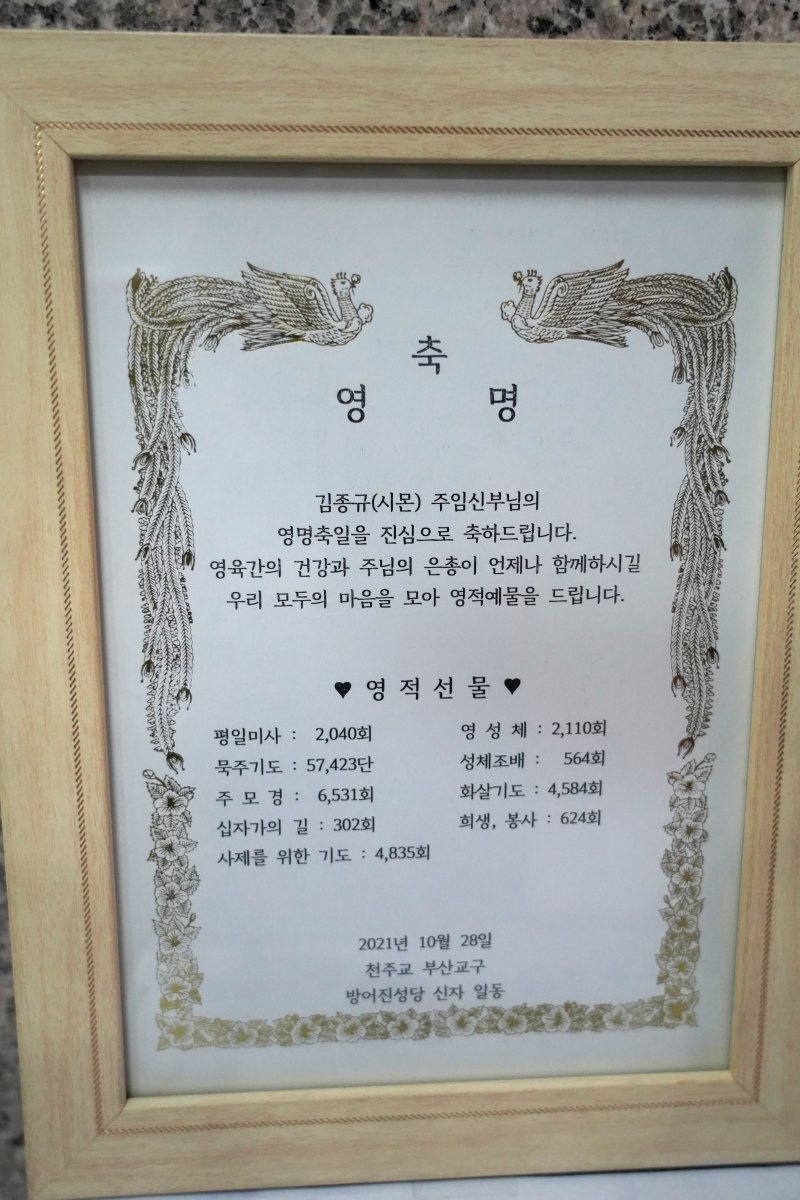 축
영 명
김종규(시몬) 주임신부님의
영명축일을 진심으로 축하드립니다.
영육간의 건강과 주님의 은총이 언제나 함께하시길
우리 모두의 마음을 모아 영적예물을 드립니다.
♥ 영 적 선 물 ♥
평일미사 : 2,040회 영 성 체 : 2,110회
묵주기도 : 57,423단 성체조배 : 564회
주 모 경 : 6,531회 화살기도 : 4,584회
십자가의 길 : 302회 희생, 봉사 : 624회
사제를 위한 기도 : 4,835회
2021년 10월 28일
천주교 부산교구
방어진성당 신자 일동